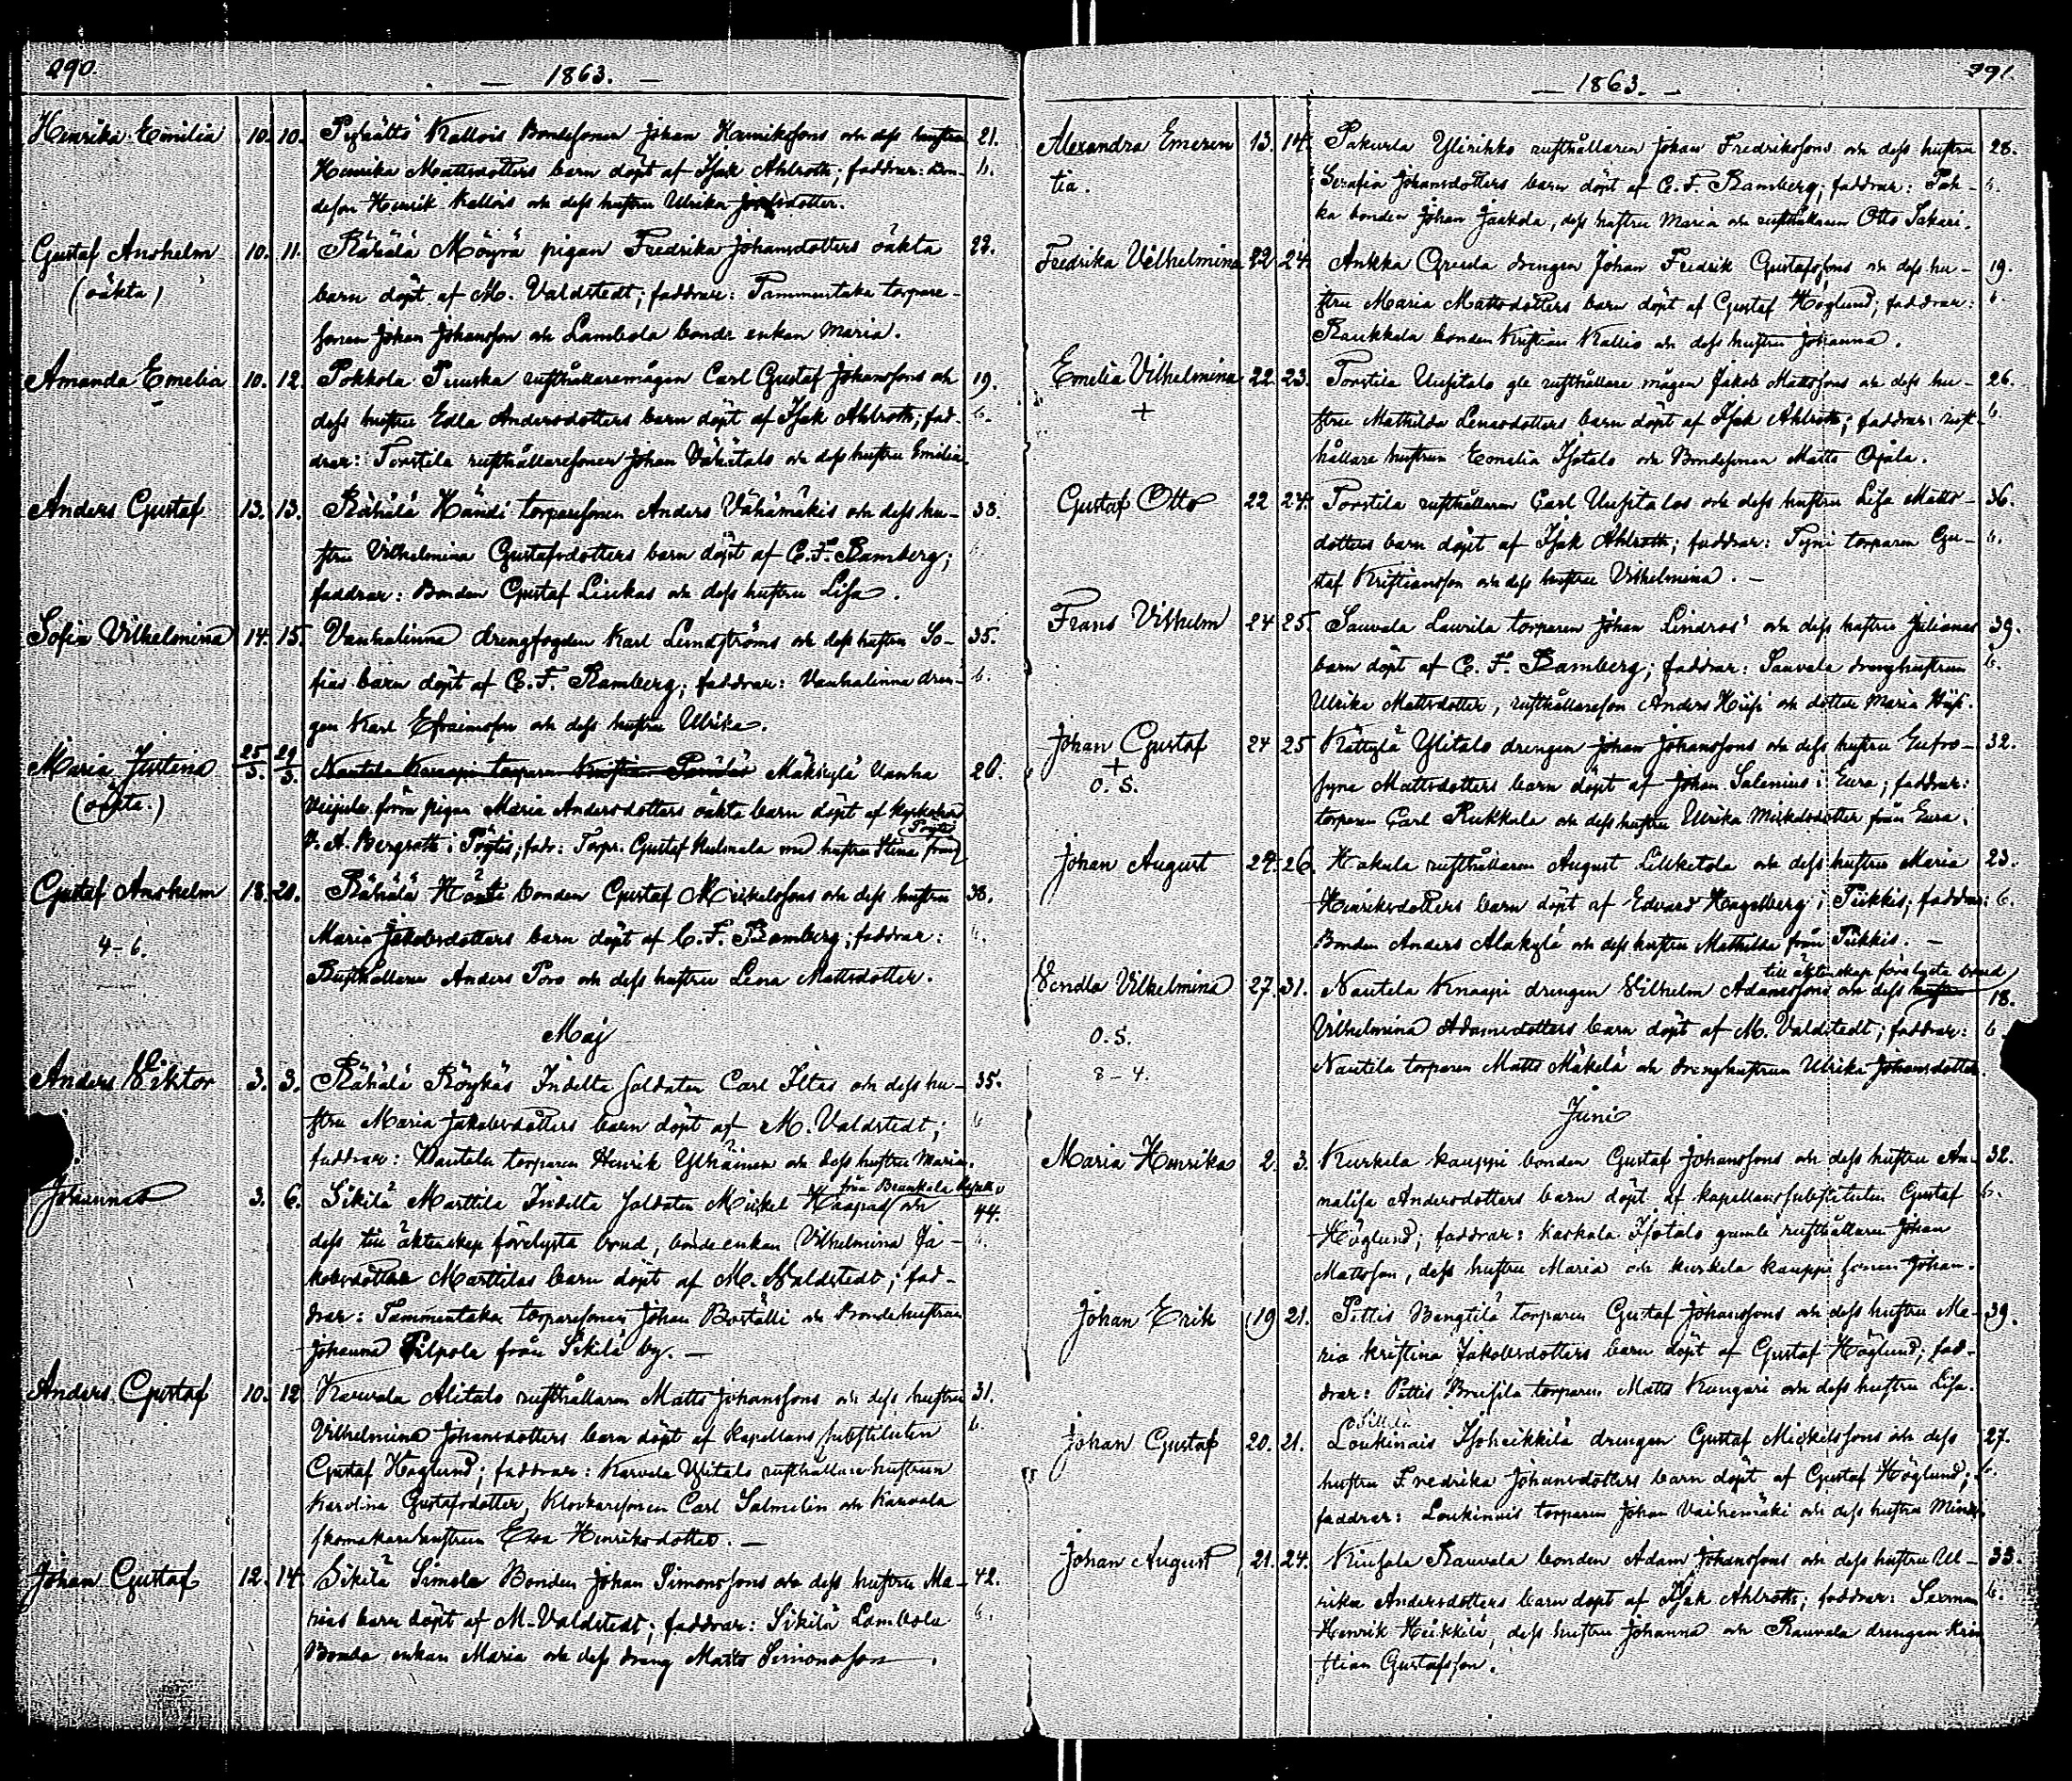 290.
— 1863. —
Henrika Emilia 10. 10. Kallois Bondesonen Johan Henrikssons och dess hustru 21.
Henrika Mattsdotters barn döpt af Isak Ahlroth; faddrar: Bon- 6.
deson Henrik Kallois och dess hustru Ulrika
Gustaf Anshelm 10. 11. Rähälä Möyrä pigan Fredrika Johansdotters oäkta 22.
(oäkta) barn döpt af M. Valdstedt; faddrar: Tammentaka torpare-
sonen Johan Johansson och Lambola bonde enkan Maria.
Amanda Emelia 10. 12. Pokkola rusthållaremågen Carl Gustaf Johanssons och 19.
dess hustru Edla Andersdotters barn döpt af Isak Ahlroth; fad- 6.
drar: Torstila rusthållaresonen Johan Vähätalo och dess hustru Emilia.
Anders Gustaf 13. 13. Rähälä Händi torparesonen Anders Vähämäkis och dess hu- 33.
stru Vilhelmina Gustafsdotters barn döpt af C. F. Bamberg;
faddrar: Bonden Gustaf Liukas och dess hustru Lisa.
Sofia Vilhelmina 14. 15. Vanhalinna drengfogden Karl Lundströms och dess hustru So- 35.
fias barn döpt af C. F. Bamberg; faddrar: Vanhalinna dren- 6.
gen Karl Efraimsson och dess hustru Ulrika.
Maria Justina 25/3. 29/3. Nautela Knaapi torparen Kristian Mäkkylä Vanha 20.
(oäkta.) pigan Maria Andersdotters oäkta barn döpt af
V. A. Bergroth i Pöytis; fadr: Torpr. Gustaf med hustru Stina från Pöytis
Gustaf Anshelm 18. 20. Rähälä bonden Gustaf Mickelssons och dess hustru 38.
4–6. Maria Jakobsdotters barn döpt af C. F. Bamberg; faddrar: 6.
Rusthållaren Anders Poro och dess hustru Lena Mattsdotter.
Maj
Anders Viktor 3. 3. Rähälä Röykäs Indelta soldaten Carl Iltas och dess hu- 35.
stru Maria Jakobsdotters barn döpt af M. Valdstedt; 6
faddrar: Nautela torparen Henrik Ylhäinen och dess hustru Maria.
Johannes 3. 6. Sikilä Marttila Indelta soldaten Mickel Haapas från och 44.
dess till äktenskap förelysta brud, bonde enkan Vilhelmina Ja- 6.
kobsdotter Marttilas barn döpt af M. Valdstedt; fad-
drar: Tammentaka torparesonen Johan och Bondehustrun
Johanna Pilpola från Sikilä by. —
Anders Gustaf 10. 12. Karvala Alitalo rusthållaren Matts Johanssons och dess hustru 31.
Vilhelmina Johansdotters barn döpt af kapellans substituten 6.
Gustaf Höglund; faddrar: Karvala Ylitalo rusthållare hustrun
Karolina Gustafsdotter, Klockaresonen Carl Salmelin och Karvala
skomakarehustrun Eva Henriksdotter. —
Johan Gustaf 12. 14. Sikilä Simola Bonden Johan Simonssons och dess hustru Ma- 42.
rias barn döpt af M. Valdstedt; faddrar: Sikilä Lambola 6.
Bonde enkan Maria och dess dreng Matts Simonsson.
291.
— 1863. —
Alexandra Emeren 13. 14. Pakurla Ylirihko rusthållaren Johan Fredrikssons och dess hustru 28.
tia. Serafia Johansdotters barn döpt af C. F. Bamberg; faddrar: Pah- 6.
ka bonden Johan Jaakola, dess hustru Maria och rusthållaren Otto Sakari.
Fredrika Vilhelmina 22 24. Ankka drengen Johan Fredrik Gustafssons och dess hu- 19.
stru Maria Mattsdotters barn döpt af Gustaf Höglund; faddrar: 6.
Raukkala bonden Kristian Kallio och dess hustru Johanna.
Emelia Vilhelmina 22. 23. Torstila Uusitalo gle rusthållare mågen Jakob Mattssons och dess hu- 26.
+ stru Mathilda Lenasdotters barn döpt af Isak Ahlroth; faddrar: rust- 6.
hållare hustrun Emelia Isotalo och Bondesonen Matts Ojala.
Gustaf Otto 22 24. Torstila rusthållaren Carl Uusitalos och dess hustru Lisa Matts- 36.
dotters barn döpt af Isak Ahlroth; faddrar: Tyni torparen Gu- 6.
staf Kristiansson och dess hustru Vilhelmina. —
Frans Vilhelm 24 25. Sauvala Laurila torparen Johan Lindros' och dess hustru Julianas 39.
barn döpt af C. F. Bamberg; faddrar: Sauvala drenghustrun 6.
Ulrika Mattsdotter, rusthållareson Anders Hiisi och dotter Maria Hiisi.
Johan Gustaf 24 25 Kättylä Ylitalo drengen Johan Johanssons och dess hustru Eufro- 32.
+
O. S. syne Mattsdotters barn döpt af Johan Salenius i Eura; faddrar:
torparen Carl Rukkala och dess hustru Ulrika Mickelsdotter från Eura.
Johan August 24. 26. Hakula rusthållaren August Liuketola och dess hustru Maria 23.
Henriksdotters barn döpt af Edvard Hengelberg i Piikkis; faddrar: 6.
Bonden Anders Alakylä och dess hustru Mathilda från Piikkis. —
Vendla Vilhelmina 27. 31. Nautela Knaapi drengen Vilhelm Adamssons och dess hustru till äktenskap förelysta brud 18.
O. S. Vilhelmina Adamsdotters barn döpt af M. Valdstedt; faddrar: 6
8–4. Nautela torparen Matts Mäkelä och drenghustrun Ulrika Johansdotter.
Juni
Maria Henrika 2. 3. Kurkela kauppi bonden Gustaf Johanssons och dess hustru An- 32.
nalisa Andersdotters barn döpt af kapellanssubstituten Gustaf 6.
Höglund; faddrar: Kaskala Isotalo gamle rusthållaren Johan
Mattsson, dess hustru Maria och kurkela kauppi sonen Johan.
Johan Erik 19 21. Pettis Bengtilä torparen Gustaf Johanssons och dess hustru Ma- 39.
ria Kristina Jakobsdotters barn döpt af Gustaf Höglund; fad-
drar: Pettis torparen Matts Kungari och dess hustru Lisa.
Johan Gustaf 20. 21. Loukinais Isoheikkilä drengen Gustaf Mickelssons och dess 27.
hustru Fredrika Johansdotters barn döpt af Gustaf Höglund; 6.
faddrar: Loukinais torparen Johan Vaihemäki och dess hustru Mina.
Johan August 21. 24. Kiusala Rauvala bonden Adam Johanssons och dess hustru Ul- 35.
rika Andersdotters barn döpt af Isak Ahlroth; faddrar: Sexman 6.
Henrik Heikkilä, dess hustru Johanna och Rauvala drengen Kri
stian Gustafsson.